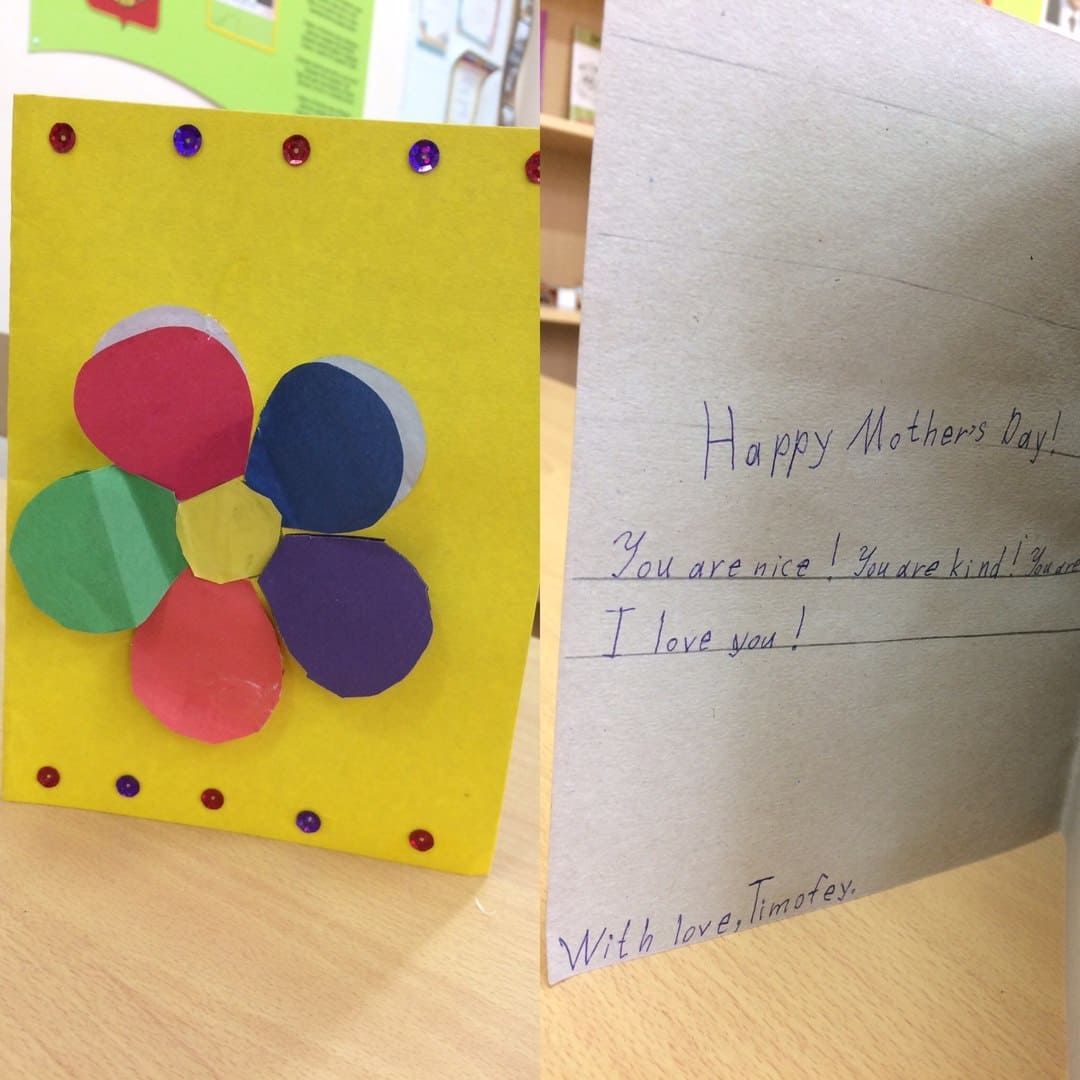 Happy Mother's Day!
You are nice! You are kind! You are
I love you!
With love, Timofey.